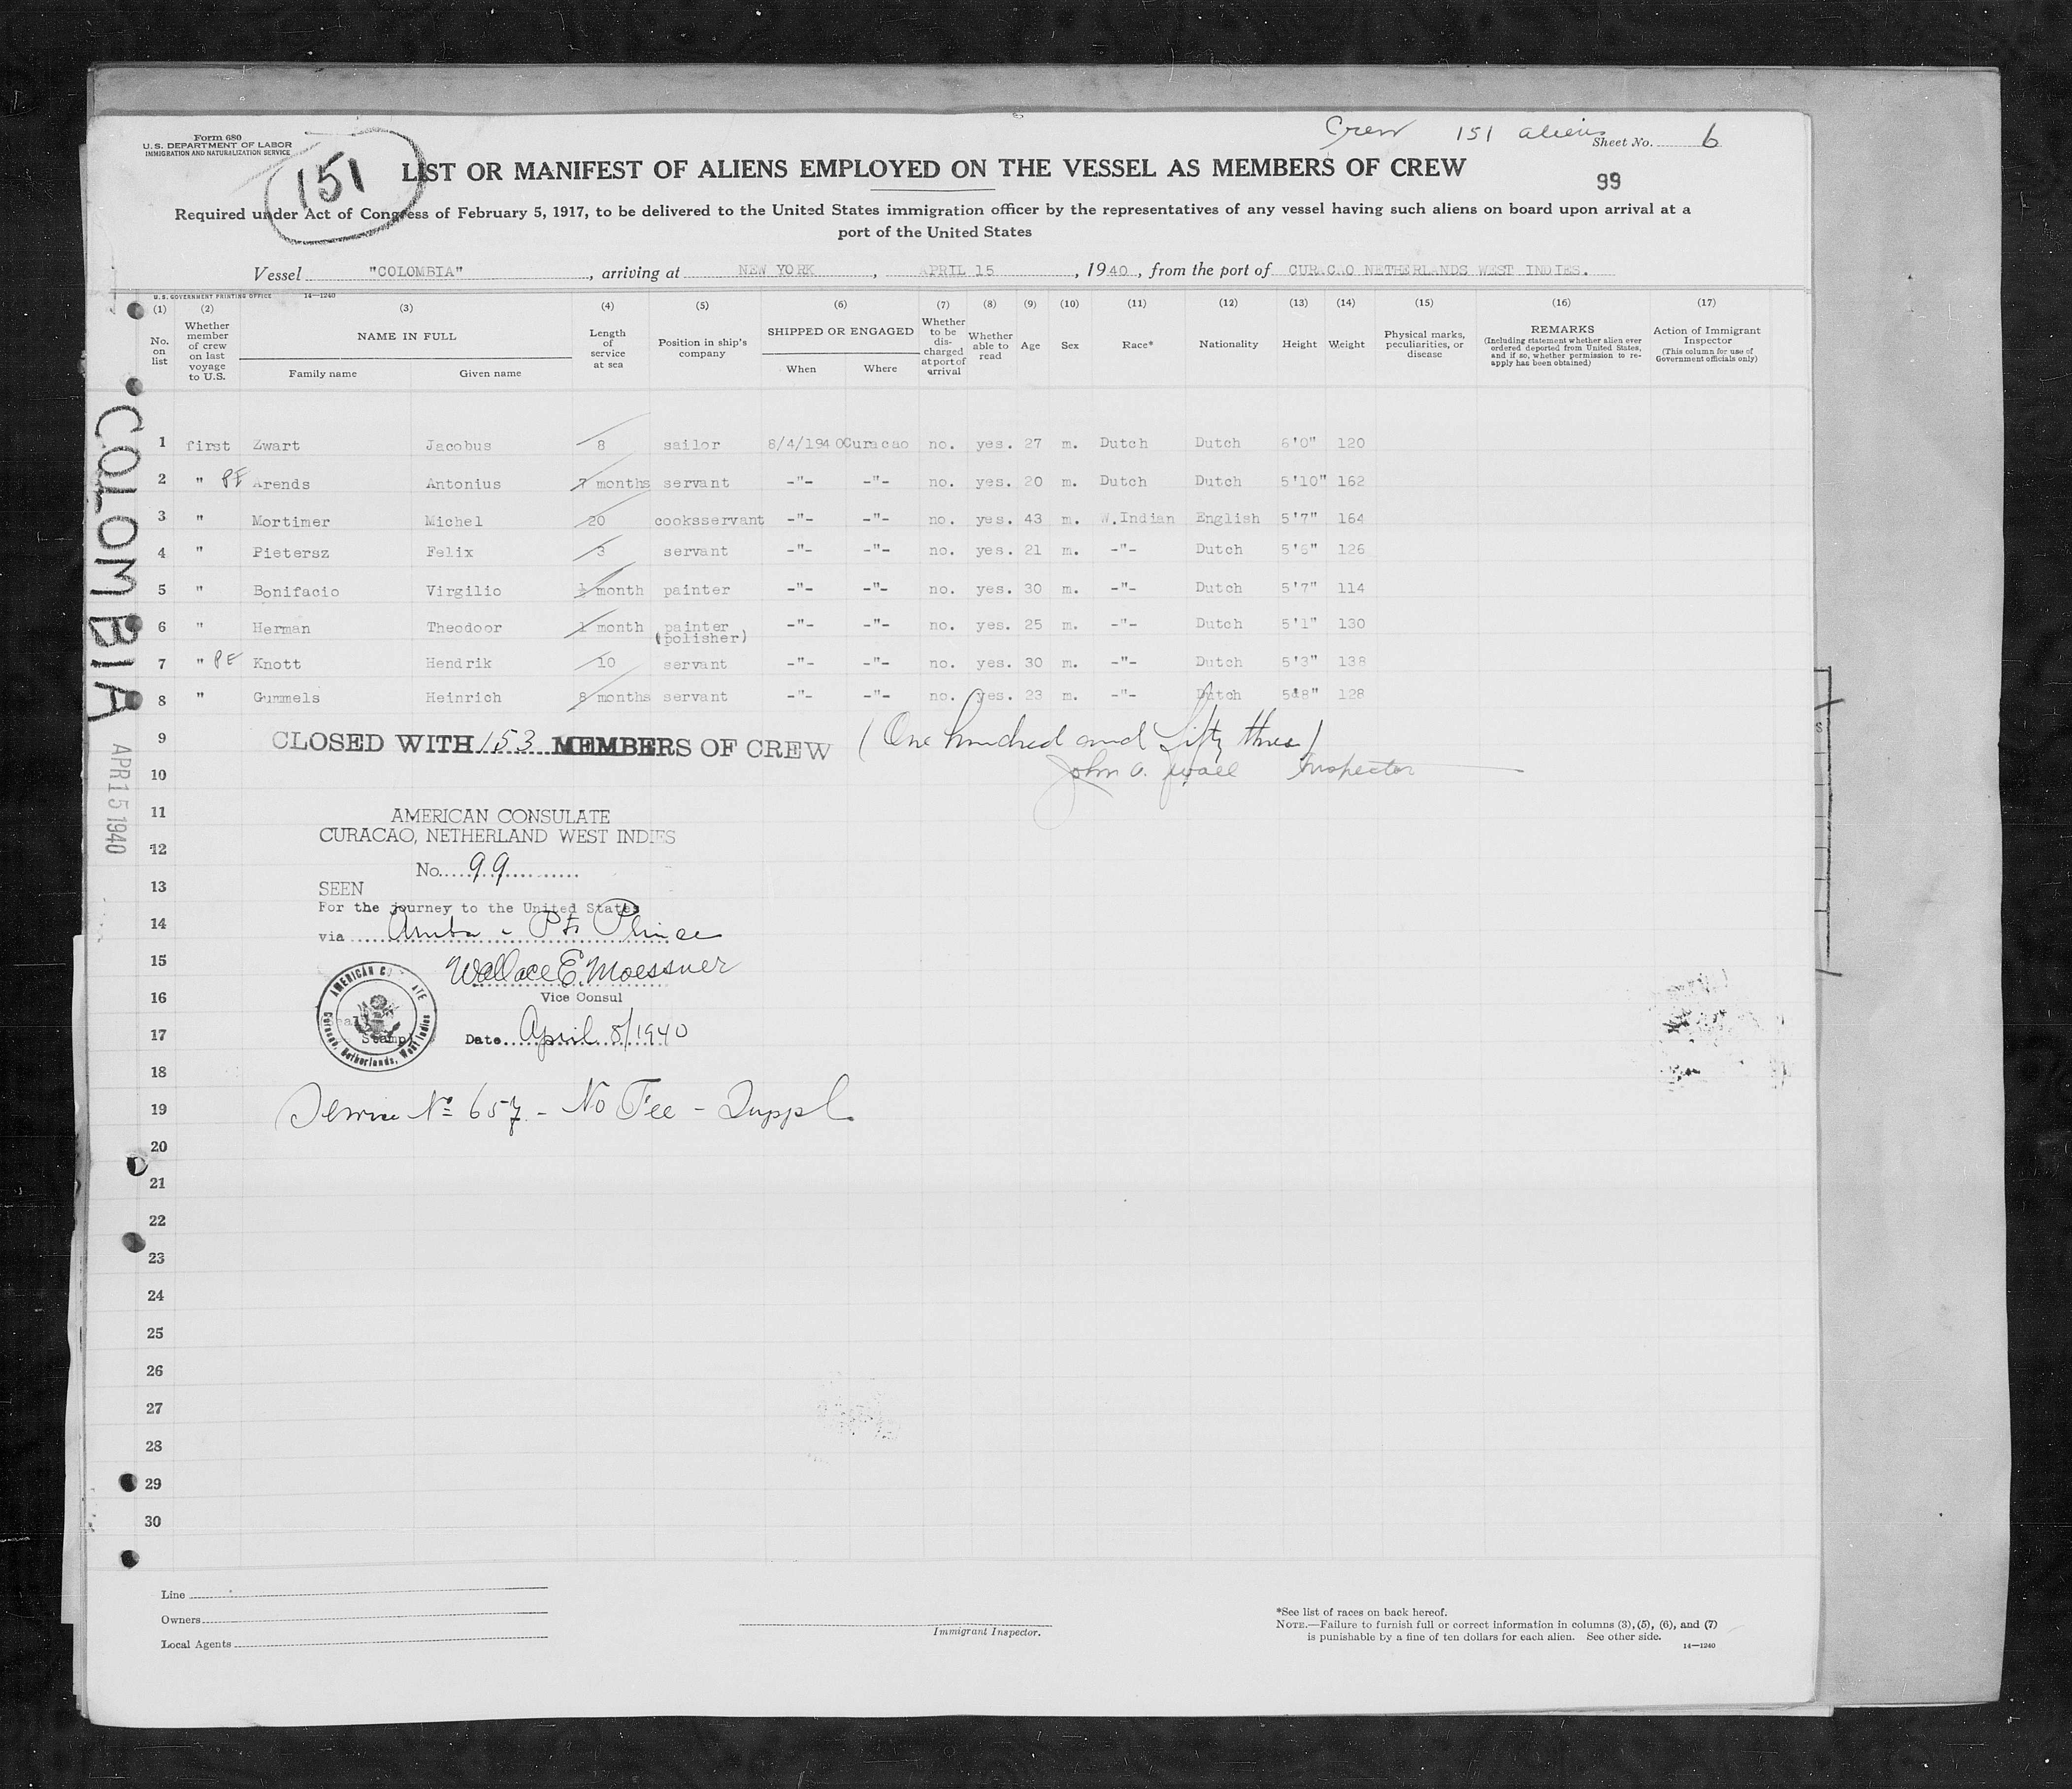 Form 680
U.S. DEPARTMENT OF LABOR
IMMIGRATION AND NATURALIZATION SERVICE
151
Crew 151 aliens
Sheet No. 6
LIST OR MANIFEST OF ALIENS EMPLOYED ON THE VESSEL AS MEMBERS OF CREW
99
Required under Act of Congress of February 5, 1917, to be delivered to the United States immigration officer by the representatives of any vessel having such aliens on board upon arrival at a
port of the United States
Vessel "COLOMBIA", arriving at NEW YORK, APRIL 15, 1940, from the port of CURACAO NETHERLANDS WEST INDIES.
U.S. GOVERNMENT PRINTING OFFICE 14—1240
(1) No. on list
(2) Whether member of crew on last voyage to U.S.
(3) NAME IN FULL Family name Given name
(4) Length of service at sea
(5) Position in ship's company
(6) SHIPPED OR ENGAGED When Where
(7) Whether to be discharged at port of arrival
(8) Whether able to read
(9) Age
(10) Sex
(11) Race*
(12) Nationality
(13) Height
(14) Weight
(15) Physical marks, peculiarities, or disease
(16) REMARKS (Including statement whether alien ever ordered deported from United States, and if so, whether permission to reapply has been obtained)
(17) Action of Immigrant Inspector (This column for use of Government officials only)
1 first Zwart Jacobus 8 sailor 8/4/1940 Curacao no. yes. 27 m. Dutch Dutch 6'0" 120
2 " PE Arends Antonius 7 months servant -"- -"- no. yes. 20 m. Dutch Dutch 5'10" 162
3 " Mortimer Michel 20 cooksservant -"- -"- no. yes. 43 m. W.Indian English 5'7" 164
4 " Pietersz Felix 3 servant -"- -"- no. yes. 21 m. -"- Dutch 5'6" 126
5 " Bonifacio Virgilio ½ month painter -"- -"- no. yes. 30 m. -"- Dutch 5'7" 114
6 " Herman Theodoor 1 month painter (polisher) -"- -"- no. yes. 25 m. -"- Dutch 5'1" 130
7 " PE Knott Hendrik 10 servant -"- -"- no. yes. 30 m. -"- Dutch 5'3" 138
8 " Gummels Heinrich 8 months servant -"- -"- no. yes. 23 m. -"- Dutch 5'8" 128
9 CLOSED WITH 153 MEMBERS OF CREW (One hundred and fifty three)
10 John A. Inspector
11 AMERICAN CONSULATE
CURACAO, NETHERLAND WEST INDIES
12
No. 99
13 SEEN
For the journey to the United States
14 via Aruba Pt Prince
15 Wallace E. Moessner
16 Vice Consul
AMERICAN CONSULATE Curacao, Netherlands, West Indies
Stamp
17 Date April 8/1940
18
19 Service No 657 - No Fee - Suppl
20
21
22
23
24
25
26
27
28
29
30
COLOMBIA
APR 15 1940
Line
Owners
Local Agents
Immigrant Inspector.
*See list of races on back hereof.
NOTE.—Failure to furnish full or correct information in columns (3), (5), (6), and (7)
is punishable by a fine of ten dollars for each alien. See other side.
14—1240